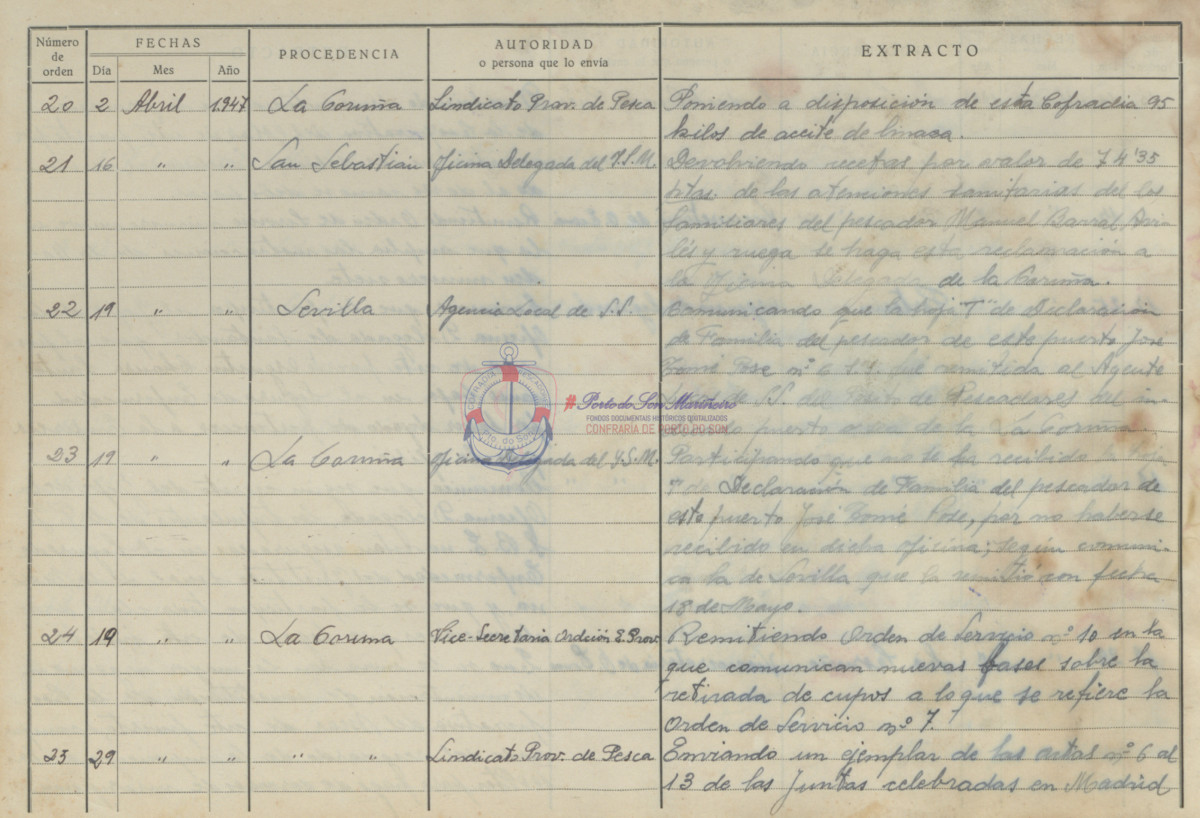 Número de orden
FECHAS
Día Mes Año
PROCEDENCIA
AUTORIDAD
o persona que lo envía
EXTRACTO
20 2 Abril 1.947 La Coruña Sindicato Prov. de Pesca Poniendo a disposición de esta Cofradia 95
kilos de aceite de linaza.
21 16 " " San Sebastián Oficina Delegada del I.S.M. Devolviendo recetas por valor de 74'35
ptas. de las atenciones sanitarias del los
familiares del pescador Manuel Barral Avi-
lés y ruega se haga esta reclamación a
la Oficina Delegada de la Coruña.
22 19 " " Sevilla Agencia Local de S.S. Comunicando que la hoja "I" de Declaración
de Familia del pescador de este puerto José
Tomé Pose nº 6 fué remitida al Agente
de S.S. del Posito de Pescadores del
puerto de la La Coruña.
23 19 " " La Coruña Oficina Delegada del I.S.M. Participando que no se ha recibido la hoja
de Declaración de Familia del pescador de
este puerto José Tomé Pose, por no haberse
recibido en dicha oficina; según comuni-
ca la de Sevilla que la remitió con fecha
18 de Mayo.
24 19 " " La Coruña Vice-Secretaria Ordción E. Prov. Remitiendo Orden de Servicio nº 10 en la
que comunican nuevas bases sobre la
retirada de cupos a lo que se refiere la
Orden de Servicio nº 7.
25 29 " " " " Sindicato Prov. de Pesca Enviando un ejemplar de las actas nº 6 al
13 de las Juntas celebradas en Madrid
COFRADIA PESCADORES
Pto. do Son
#Porto do Son Mariñeiro
FONDOS DOCUMENTAIS HISTÓRICOS DIGITALIZADOS
CONFRARÍA DE PORTO DO SON